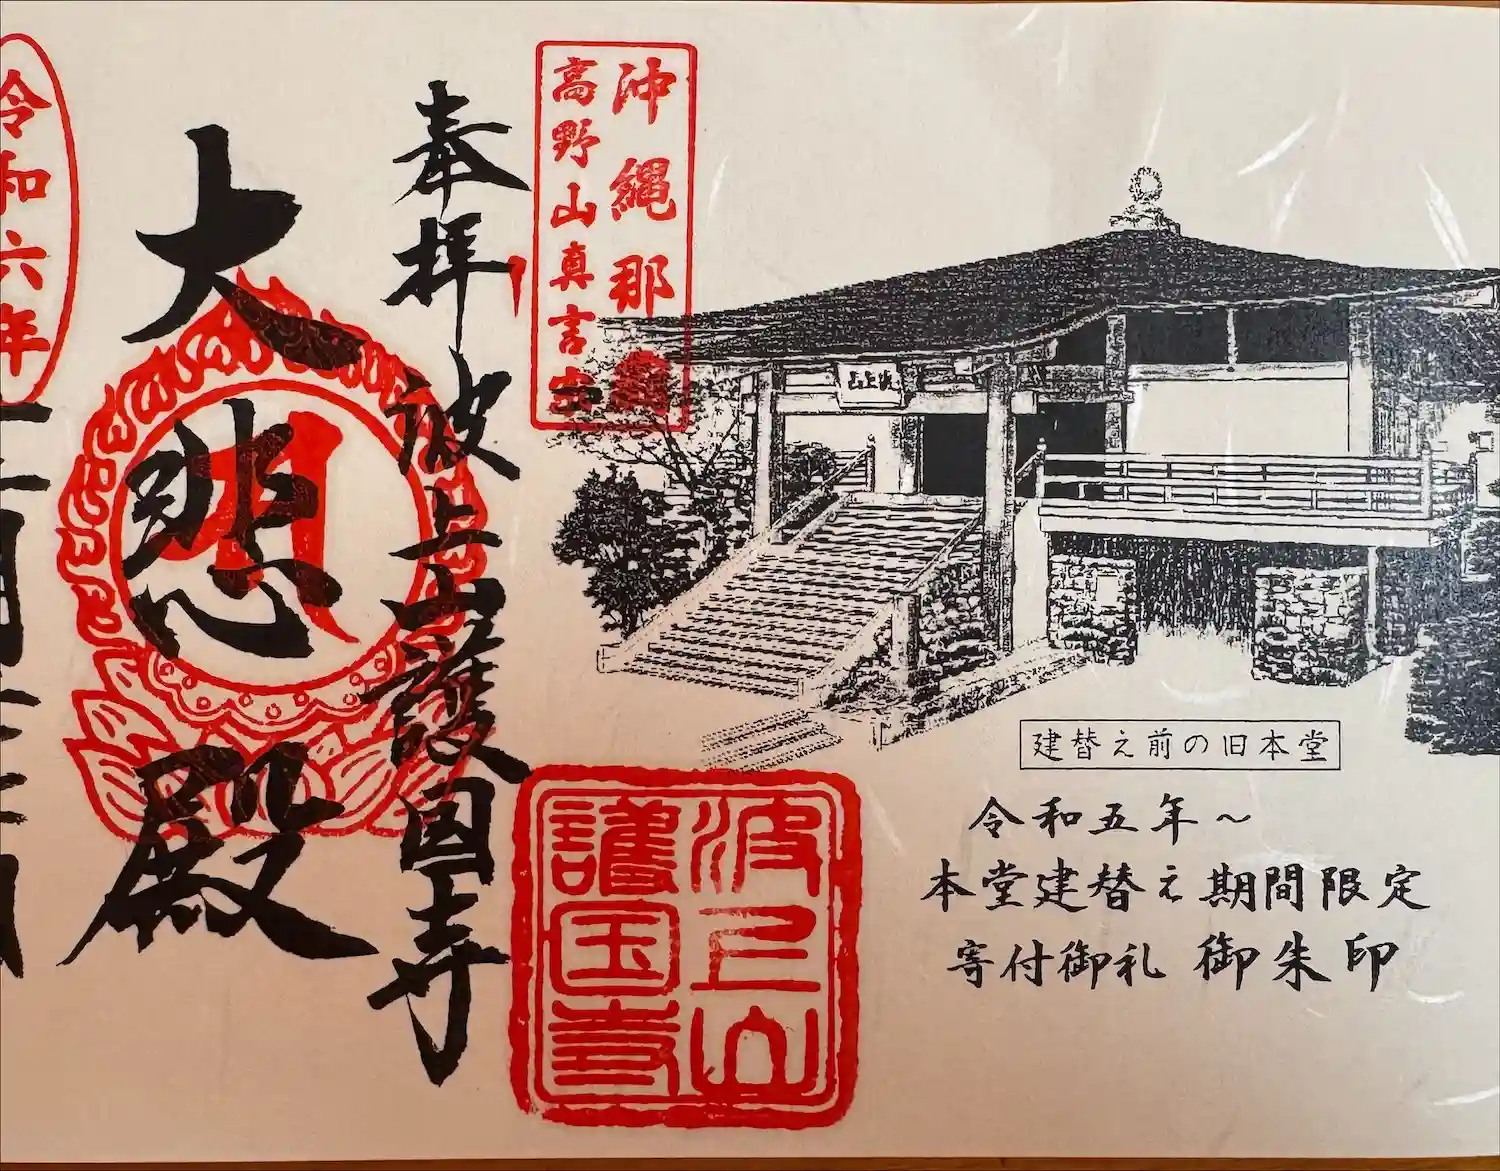 建替え前の旧本堂
令和五年～
本堂建替え期間限定
寄付御礼 御朱印
沖縄那
高野山真言宗
波上山
護国寺
奉拝 波上山護国寺
大悲殿
令和六年